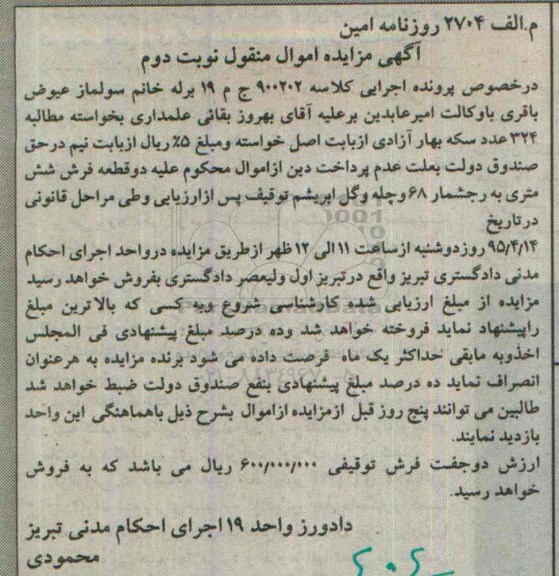 م.الف ۲۷۰۴ روزنامه امین
آگهی مزایده اموال منقول نوبت دوم
درخصوص پرونده اجرایی کلاسه ۹۰۰۲۰۲ ج م ۱۹ برله خانم سولماز عیوض
باقری باوکالت امیرعابدین برعلیه آقای بهروز بقائی علمداری بخواسته مطالبه
۳۲۴ عدد سکه بهار آزادی ازبابت اصل خواسته ومبلغ ۵٪ ریال ازبابت نیم درحق
صندوق دولت بعلت عدم پرداخت دین ازاموال محکوم علیه دوقطعه فرش شش
متری به رجشمار ۶۸ وچله وگل ابریشم توقیف پس ازارزیابی وطی مراحل قانونی
درتاریخ
۹۵/۴/۱۴ روز دوشنبه ازساعت ۱۱ الی ۱۲ ظهر ازطریق مزایده درواحد اجرای احکام
مدنی دادگستری تبریز واقع درتبریز اول ولیعصر دادگستری بفروش خواهد رسید
مزایده از مبلغ ارزیابی شده کارشناسی شروع وبه کسی که بالاترین مبلغ
راپیشنهاد نماید فروخته خواهد شد وده درصد مبلغ پیشنهادی فی المجلس
اخذوبه مابقی حداکثر یک ماه فرصت داده می شود برنده مزایده به هرعنوان
انصراف نماید ده درصد مبلغ پیشنهادی بنفع صندوق دولت ضبط خواهد شد
طالبین می توانند پنج روز قبل ازمزایده ازاموال بشرح ذیل باهماهنگی این واحد
بازدید نمایند.
ارزش دوجفت فرش توقیفی ۶۰۰/۰۰۰/۰۰۰ ریال می باشد که به فروش
خواهد رسید.
دادورز واحد ۱۹ اجرای احکام مدنی تبریز
محمودی